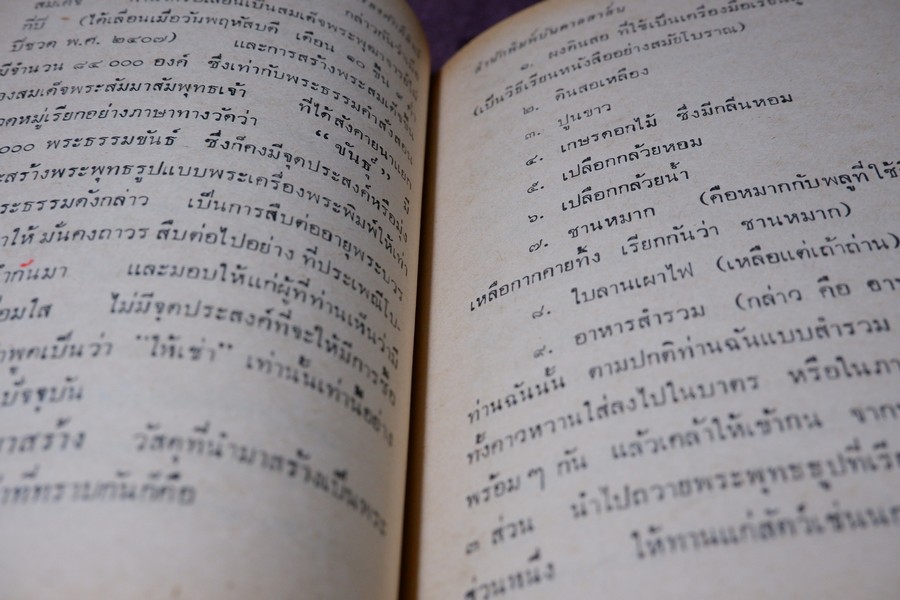 กล่าวกันว่า
สมเด็จ
เลื่อนเป็นสมเด็จพระพุฒาจารย์
คปี (ได้เลื่อนเมื่อวันพฤหัสบดี เดือน ๑๐ ขึ้น
ปีชวด พ.ศ. ๒๔๐๗) และการสร้างพระสมเด็จ
มีจำนวน ๘๔.๐๐๐ องค์ ซึ่งเท่ากับพระธรรมคำสั่งสอน
องสมเด็จพระสัมมาสัมพุทธเจ้า ที่ได้สังคายนาแยก
วดหมู่เรียกอย่างภาษาทางวัดว่า “ขันธ์” มี
๐๐๐ พระธรรมขันธ์ ซึ่งก็คงมีจุดประสงค์หรือมุ่ง
ะสร้างพระพุทธรูปแบบพระเครื่องพระพิมพ์ให้เท่า
ระธรรมดังกล่าว เป็นการสืบต่ออายุพระบวร
าให้มั่นคงถาวร สืบต่อไปอย่าง ที่ประเพณีโบ-
ำกันมา และมอบให้แก่ผู้ที่ท่านเห็นว่ามี
อมใส ไม่มีจุดประสงค์ที่จะให้มีการซื้อ
าพูดเป็นว่า “ให้เช่า” เท่านั้นเท่านี้อย่าง
ปัจจุบัน
าสร้าง วัสดุที่นำมาสร้างเป็นพระ
าที่ทราบกันก็คือ
สำนักพิมพ์บันดาลสาส์น
๑. ผงดินสอ ที่ใช้เป็นเครื่องมือเรียน
(เป็นวิธีเรียนหนังสืออย่างสมัยโบราณ)
๒. ดินสอเหลือง
๓. ปูนขาว
๔. เกษรดอกไม้ ซึ่งมีกลิ่นหอม
๕. เปลือกกล้วยหอม
๖. เปลือกกล้วยน้ำ
๗. ชานหมาก (คือหมากกับพลูที่ใช้
เหลือกากคายทิ้ง เรียกกันว่า ชานหมาก)
๘. ใบลานเผาไฟ (เหลือแต่เถ้าถ่าน)
๙. อาหารสำรวม (กล่าว คือ อา
ท่านฉันนั้น ตามปกติท่านฉันแบบสำรวม
ทั้งคาวหวานใส่ลงไปในบาตร หรือในภา
พร้อมๆ กัน แล้วเคล้าให้เข้ากัน จาก
๓ ส่วน นำไปถวายพระพุทธรูปที่เรี
ส่วนหนึ่ง ให้ทานแก่สัตว์เช่นนก